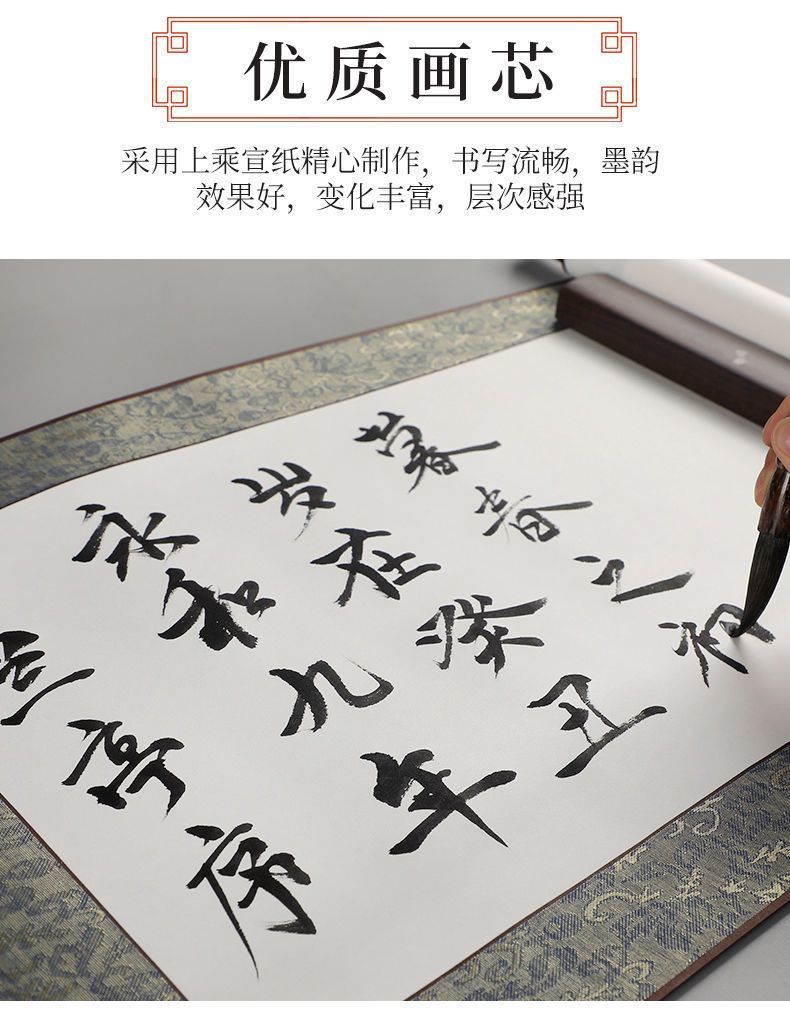 优质画芯
采用上乘宣纸精心制作，书写流畅，墨韵
效果好，变化丰富，层次感强
兰亭序
永和九年
岁在癸丑
暮春之初